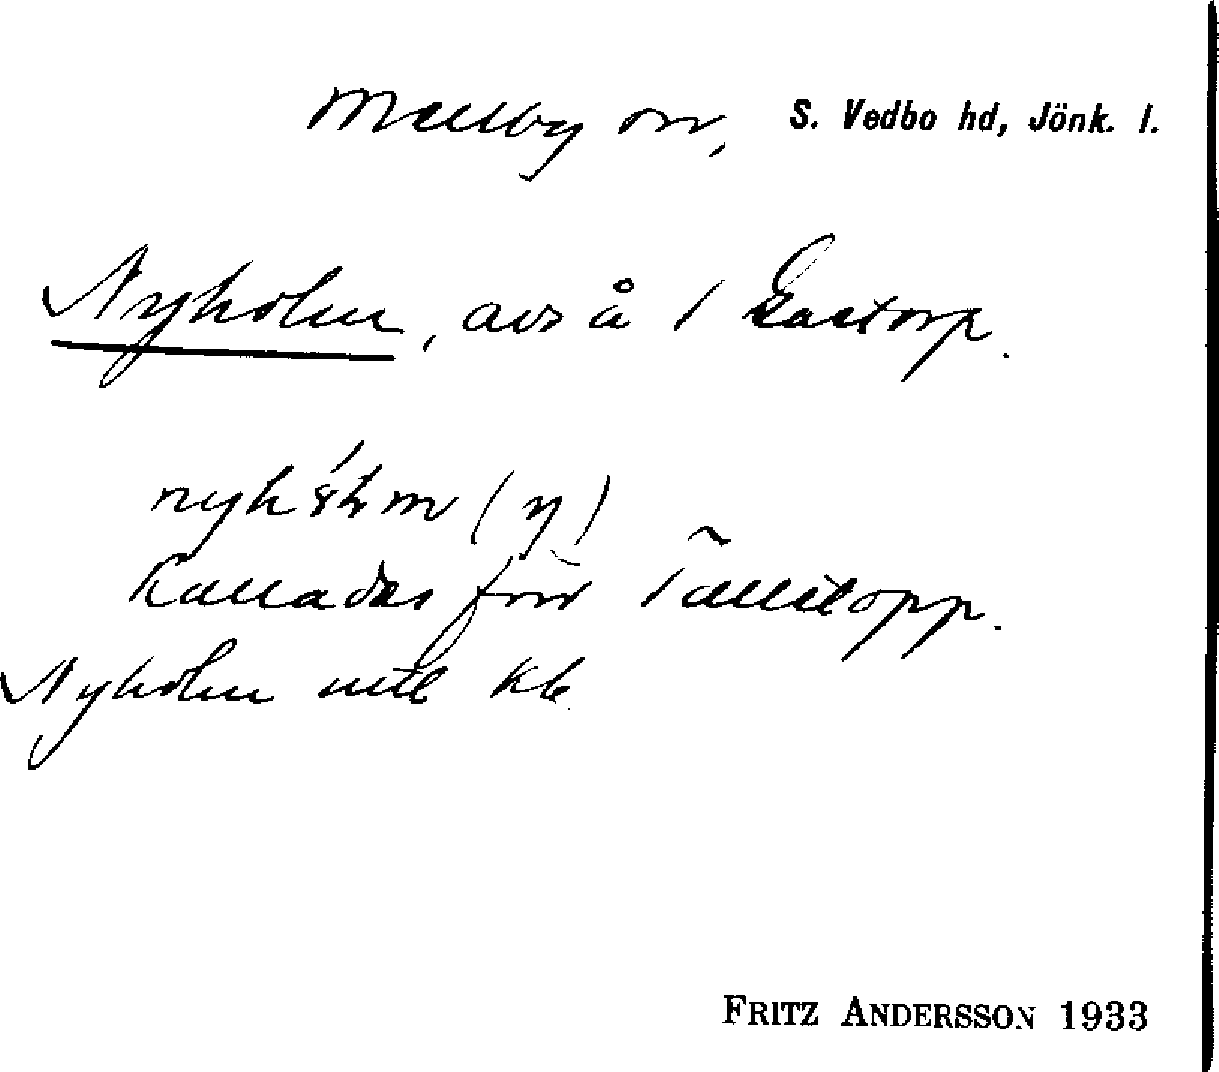 Mellby sn, S. Vedbo hd, Jönk. l.
Nyholm, avs å 1 Kastorp.
(y)
Kallades förr Tallstopp.
Nyholm
FRITZ ANDERSSON 1933